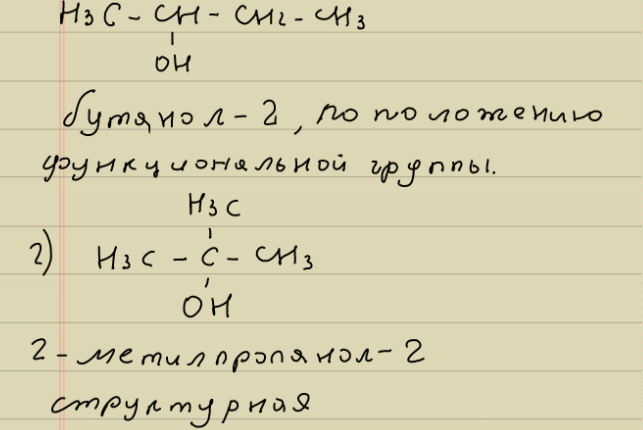 H3C - CH - CH2 - CH3
OH
бутанол-2, по положению
функциональной группы.
H3C
2) H3C - C - CH3
OH
2-метилпропанол-2
структурная